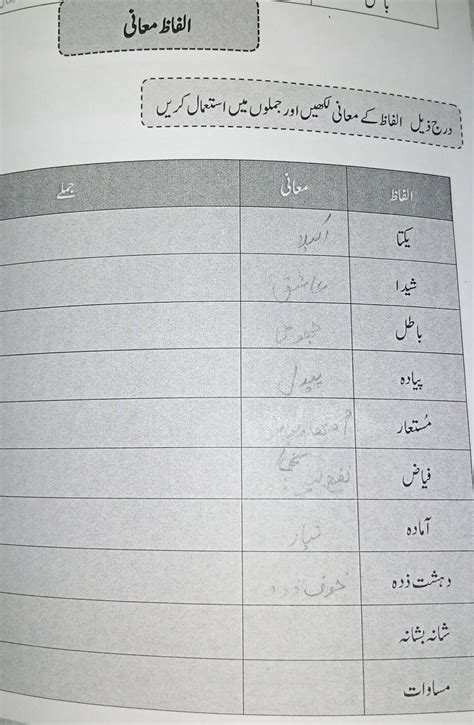 الفاظ معانی
درج ذیل الفاظ کے معانی لکھیں اور جملوں میں استعمال کریں
الفاظ معانی جملے
یکتا اکیلا
شیدا عاشق
باطل جھوٹ
پیادہ پیدل
مُستعار
فیاض سخی
آمادہ تیار
دہشت ذدہ خوف زدہ
شانہ بشانہ
مساوات